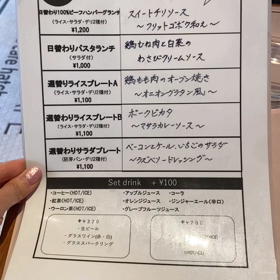 日替わり100%ビーフハンバーグランチ
(ライス・サラダ・デリ2種付)
¥1,200
スイートチリソース
〜フリットゴボウ和え〜
日替わりパスタランチ
(サラダ付)
¥1,000
鶏むね肉と白菜の
わさびクリームソース
週替りライスプレートA
(ライス・サラダ・デリ2種付)
¥1,100
鶏もも肉のオーブン焼き
〜オニオングラタン風〜
週替りライスプレートB
(ライス・サラダ・デリ2種付)
¥1,100
ポークピカタ
〜マサラカレーソース〜
週替わりサラダプレート
¥1,100
ベーコンとケール、いちごのサラダ
Set drink + ¥100
・コーヒー(HOT/ICE)
・アップルジュース
・コーラ
・紅茶(HOT/ICE)
・オレンジジュース
・ジンジャーエール(辛口)
・ウーロン茶(HOT/ICE)
・グレープフルーツジュース
・生ビール
・グラスワイン(赤・白)
・グラススパークリング
(HOT/ICE)